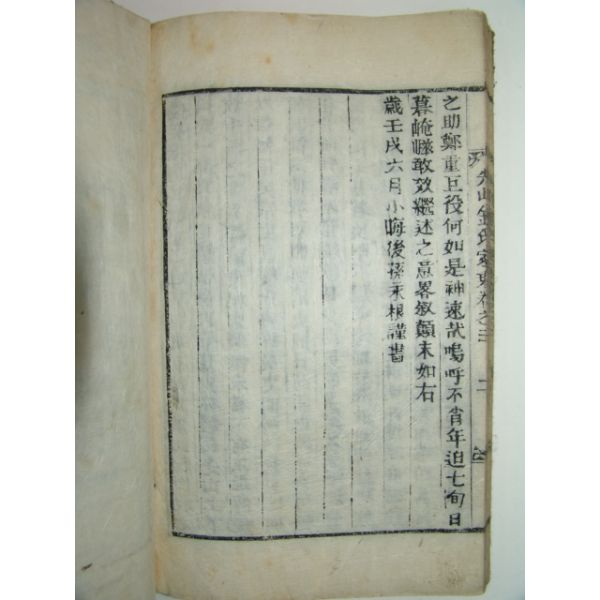 之助鄭重巨役何如是神速哉嗚呼不肖年迫七旬日
暮崦嵫敢效繼述之意畧叙顚末如右
歲壬戌六月小晦後孫永根謹書
金氏家史卷之三
二